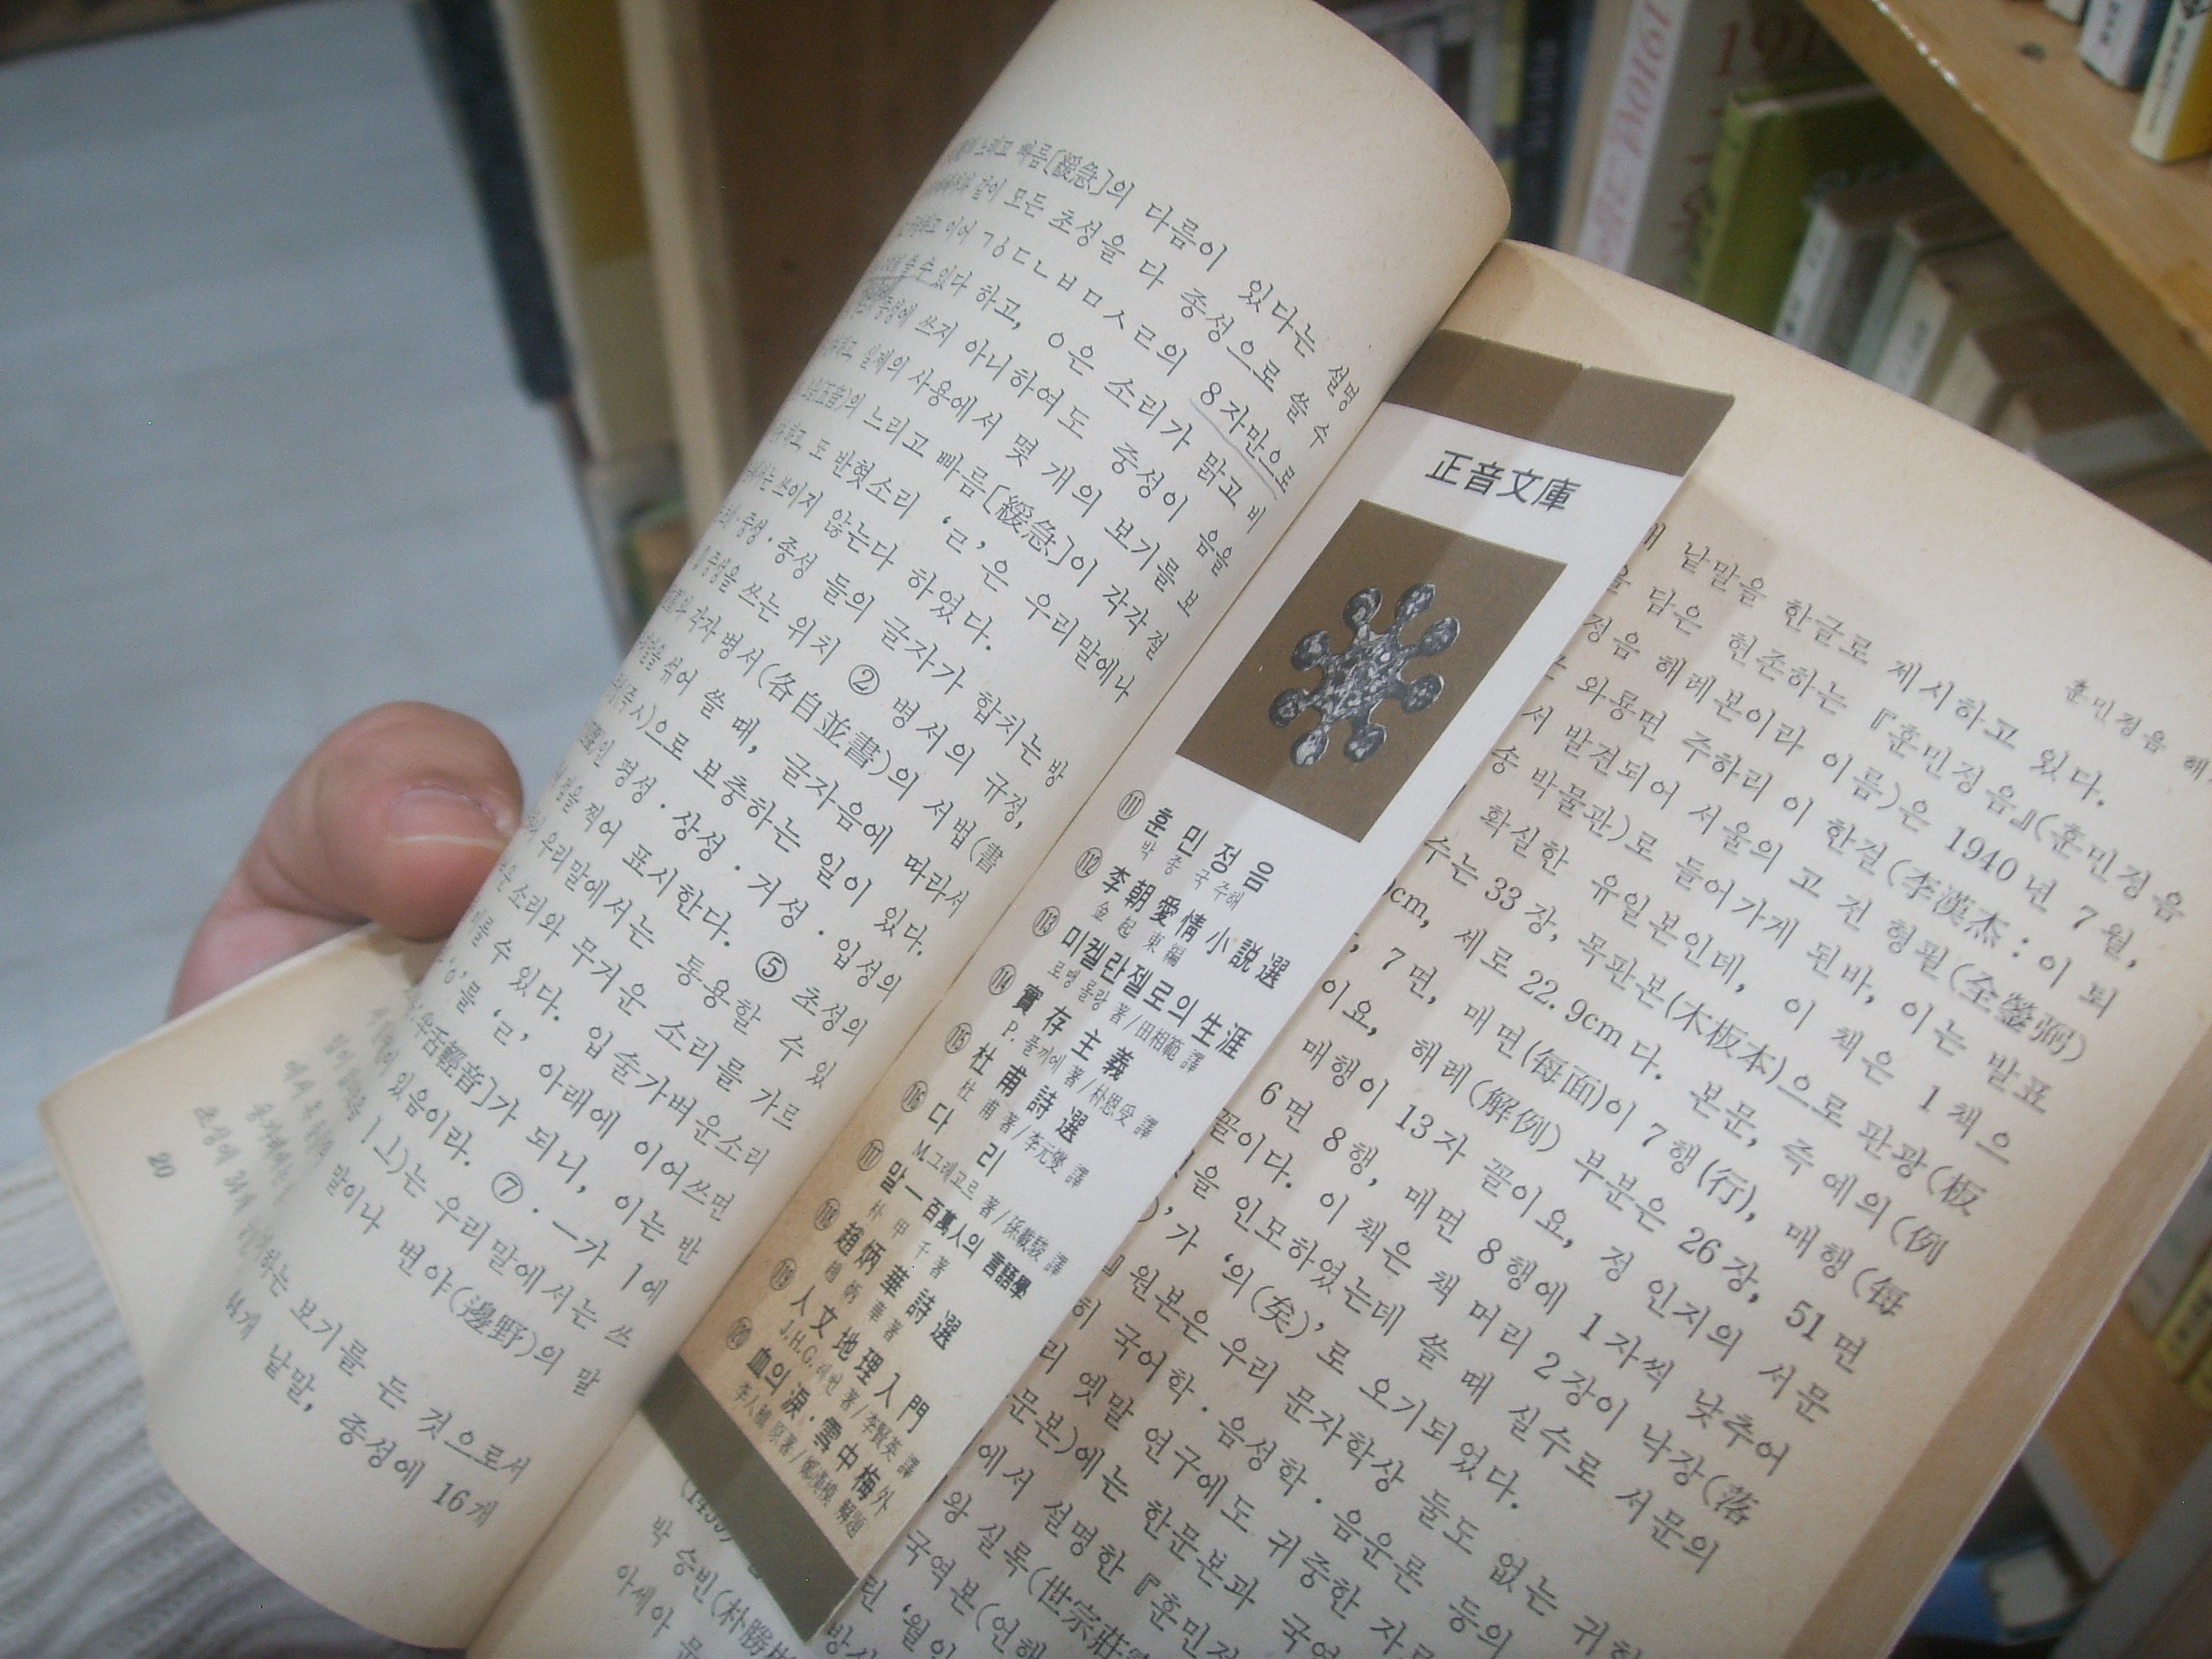 느리고 빠름[緩急]의 다름이 있다는 설명
같이 모든 초성을 다 종성으로 쓸 수
이어 ㄱㆁㄷㄴㅂㅁㅅㄹ의 8자만으로
쓸 수 있다 하고, ㅇ은 소리가 맑고 비
종성에 쓰지 아니하여도 중성이 음을
실제의 사용에서 몇 개의 보기를 보
(五音)의 느리고 빠름[緩急]이 각각 절
또 반혓소리 ‘ㄹ’은 우리말에나
쓰이지 않는다 하였다.
중성·종성 들의 글자가 합치는 방
중성을 쓰는 위치 ② 병서의 규정,
각자 병서(各自並書)의 서법(書
섞어 쓸 때, 글자음에 따라서
으로 보충하는 일이 있다.
평성·상성·거성·입성의
점을 찍어 표시한다. ⑤ 초성의
우리말에서는 통용할 수 있
소리와 무거운 소리를 가르
수 있다. 입술가벼운소리
‘ㅇ’를 ‘ㄹ’ 아래에 이어쓰면
가 되니, 이는 반
있음이라. ⑦ ·ㅡ가 ㅣ에
는 우리말에서는 쓰
말이나 변야(邊野)의 말
보기를 든 것으로서
낱말, 종성에 16개
20
正音文庫
111 훈민정음
박종국 주해
112 李朝愛情小說選
金起東 編
113 미켈란젤로의 生涯
로맹 롤랑 著/田相範 譯
114 實存主義
P. 풀끼에 著/朴恩受 譯
115 杜甫詩選
杜甫 著/李元燮 譯
116 다리
M.그레고르 著/孫載駿 譯
117 말—百萬人의 言語學
朴甲千 著
118 趙炳華詩選
趙炳華 著
119 人文地理入門
J.H.G. 레번 著/李賢英 譯
120 血의 淚·雪中梅 外
李人稙 原著/ 解題
훈민정음 해
낱말을 한글로 제시하고 있다.
담은 현존하는 『훈민정음』(훈민정음
정음 해례본이라 이름)은 1940년 7월,
와룡면 주하리 이 한걸(李漢杰:이 퇴
서 발견되어 서울의 고 전 형필(全鎣弼)
송 박물관)로 들어가게 된바, 이는 발표
확실한 유일본인데, 이 책은 1책으
수는 33장, 목판본(木板本)으로 판광(板
cm, 세로 22.9cm다. 본문, 즉 예의(例
7면, 매면(每面)이 7행(行), 매행(每
이요, 해례(解例) 부분은 26장, 51면
매행이 13자 꼴이요, 정 인지의 서문
6면 8행, 매면 8행에 1자씩 낮추어
꼴이다. 이 책은 책 머리 2장이 낙장(落
을 인모하였는데 쓸 때 실수로 서문의
가 ‘의(矣)’로 오기되었다.
원본은 우리 문자학상 둘도 없는 귀
히 국어학·음성학·음운론 등의
리 옛말 연구에도 귀중한 자
문본)에는 한문본과 국역
에서 설명한 『훈민정
왕 실록(世宗莊
국역본(언해
린 ‘월인
박 승빈(朴勝彬
아세아 문